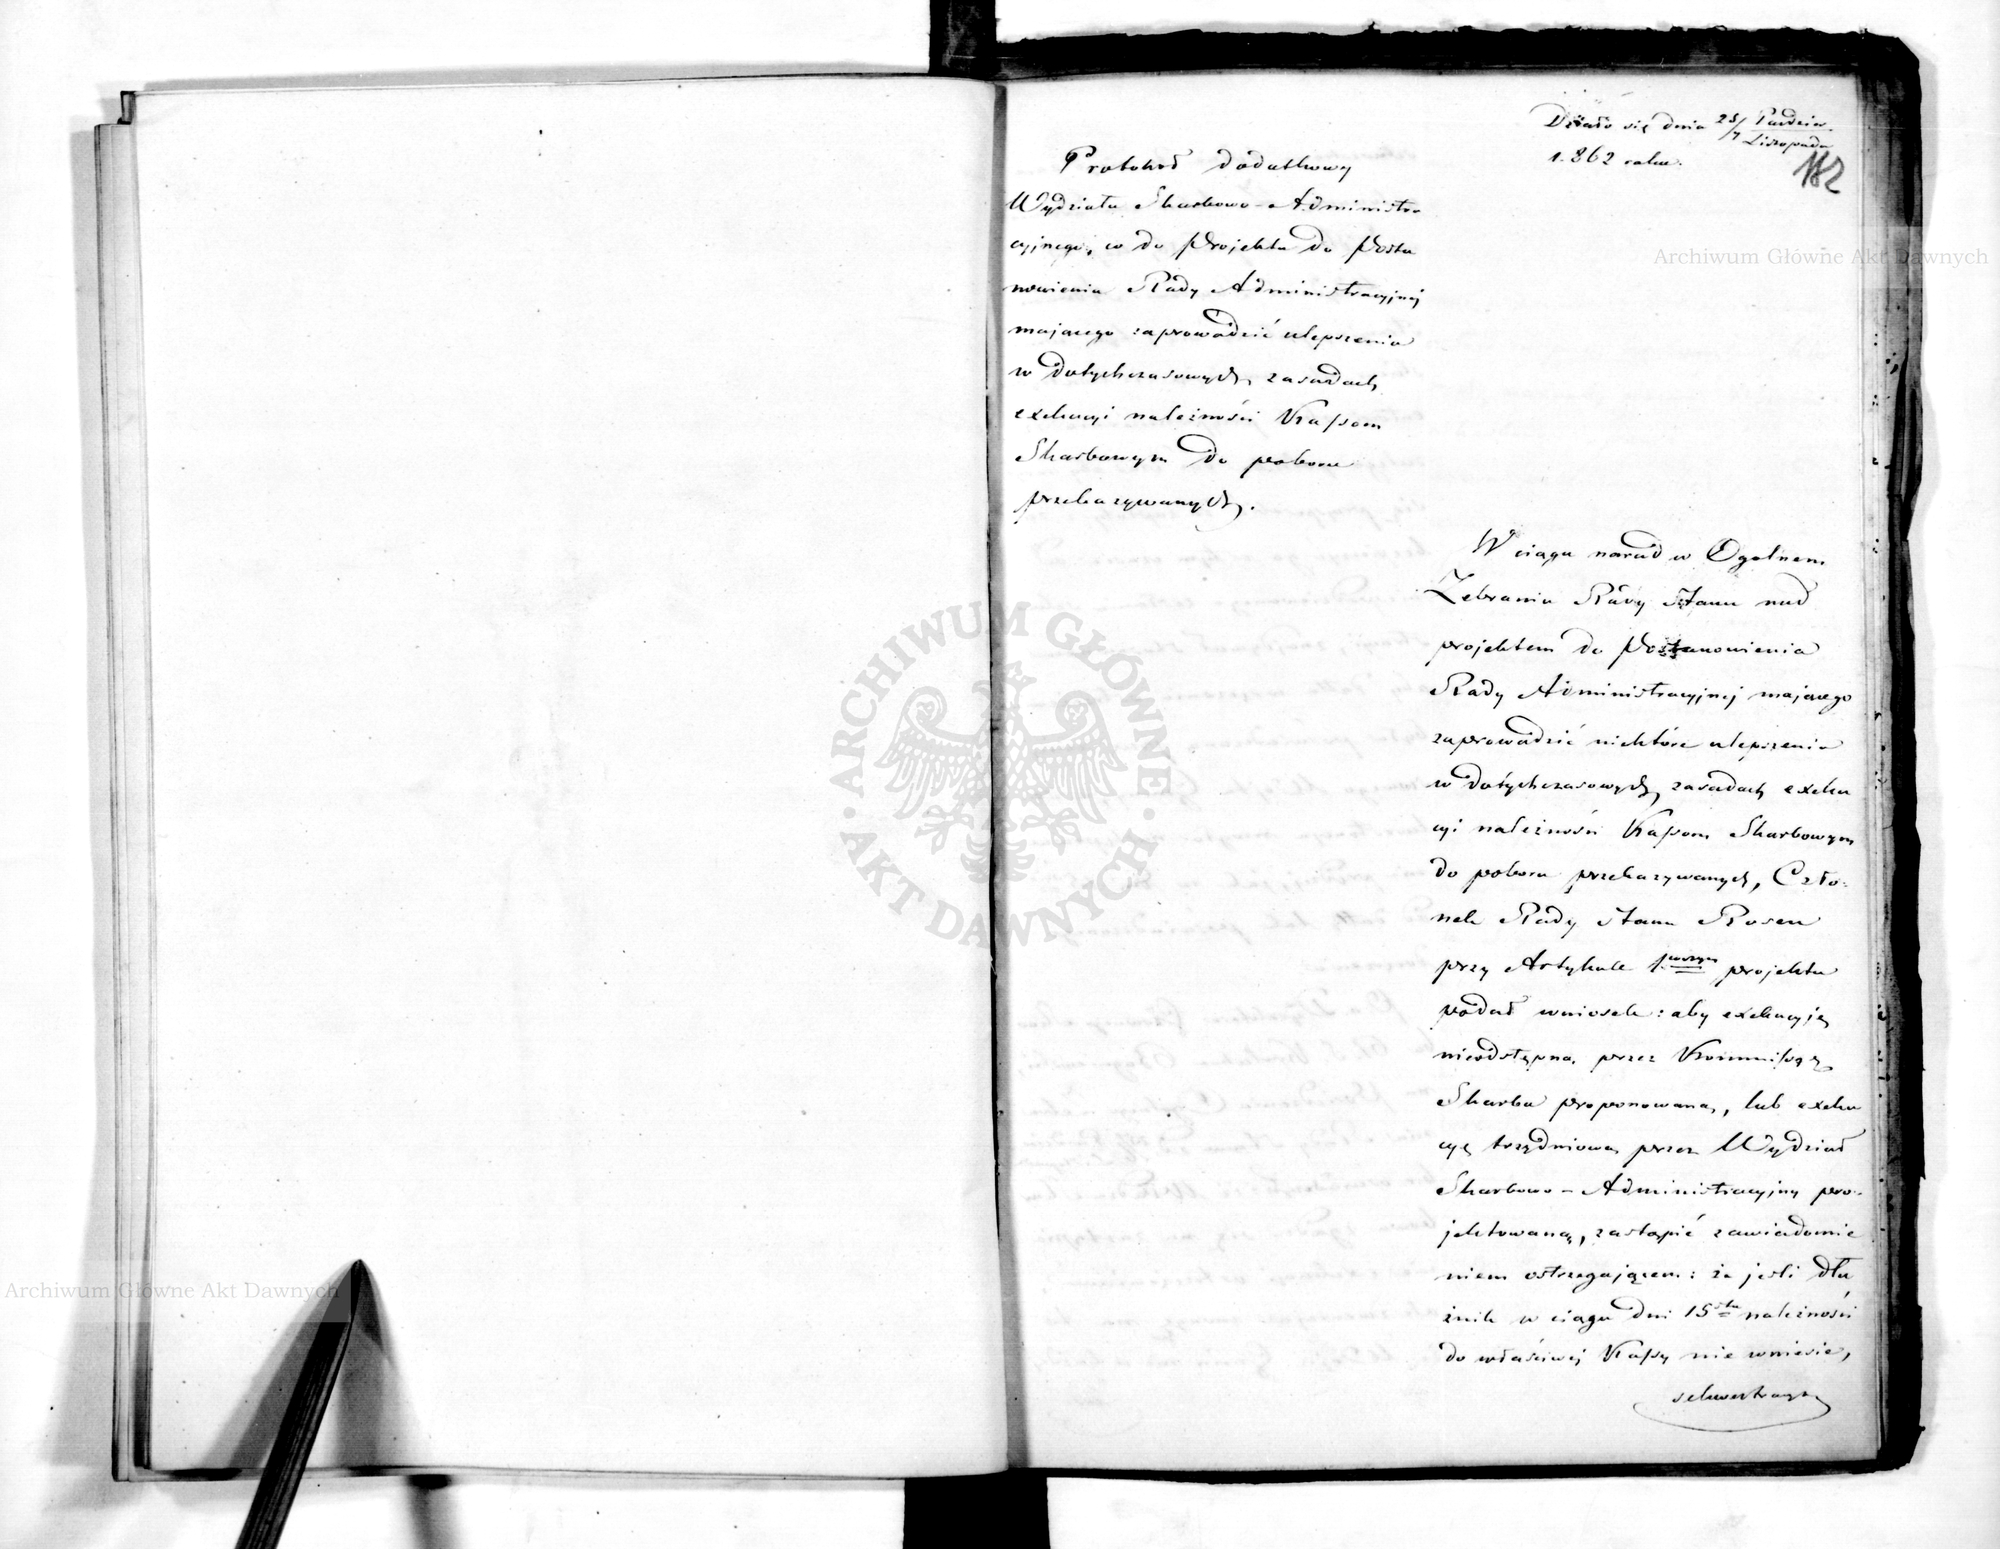 Działo się dnia 25/7 Paździer. Listopada
1.862 roku.
182
Protokół dodatkowy
Wydziału Skarbowo-Administra
cyjnego, co do Projektu do Posta
nowienia Rady Administracyjnej
mającego zaprowadzić ulepszenia
w dotychczasowych zasadach
exekucyi należności Kassom
Skarbowym do poboru
przekazywanych.
W ciągu narad w Ogólnem
Zebraniu Rady Stanu nad
projektem do Postanowienia
Rady Administracyjnej mającego
zaprowadzić niektóre ulepszenia
w dotychczasowych zasadach exeku
cyi należności Kassom Skarbowym
do poboru przekazywanych, Czło-
nek Rady Stanu Rosen
przy Artykule 1.wszym projektu
podał wniosek: aby exekucyję
nieodstępną przez Kommissyę
Skarbu proponowaną, lub exeku
cyę trzydniową przez Wydział
Skarbowo-Administracyjny pro-
jektowaną, zastąpić zawiadomie
niem ostrzegającem: że jeśli dłu
żnik w ciągu dni 15stu należności
do właściwej Kassy nie wniesie,
sekwestracya
Archiwum Główne Akt Dawnych
Archiwum Główne Akt Dawnych
ARCHIWUM GŁÓWNE · AKT DAWNYCH ·